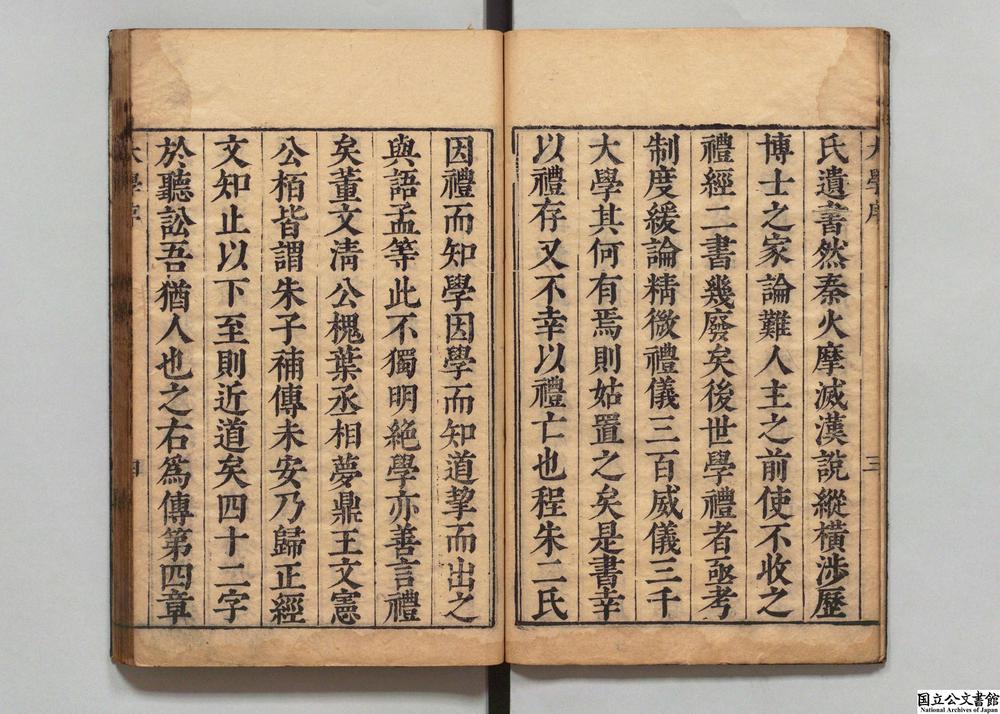 氏遺書然秦火摩滅漢説縱橫涉歷
博士之家論難人主之前使不收之
禮經二書幾廢矣後世學禮者亟考
制度緩論精微禮儀三百威儀三千
大學其何有焉則姑置之矣是書幸
以禮存又不幸以禮亡也程朱二氏
因禮而知學因學而知道挈而出之
與語孟等此不獨明絶學亦善言禮
矣董文淸公槐葉丞相夢鼎王文憲
公栢皆謂朱子補傳未安乃歸正經
文知止以下至則近道矣四十二字
於聽訟吾猶人也之右爲傳第四章
大學序
三
国立公文書館
National Archives of Japan